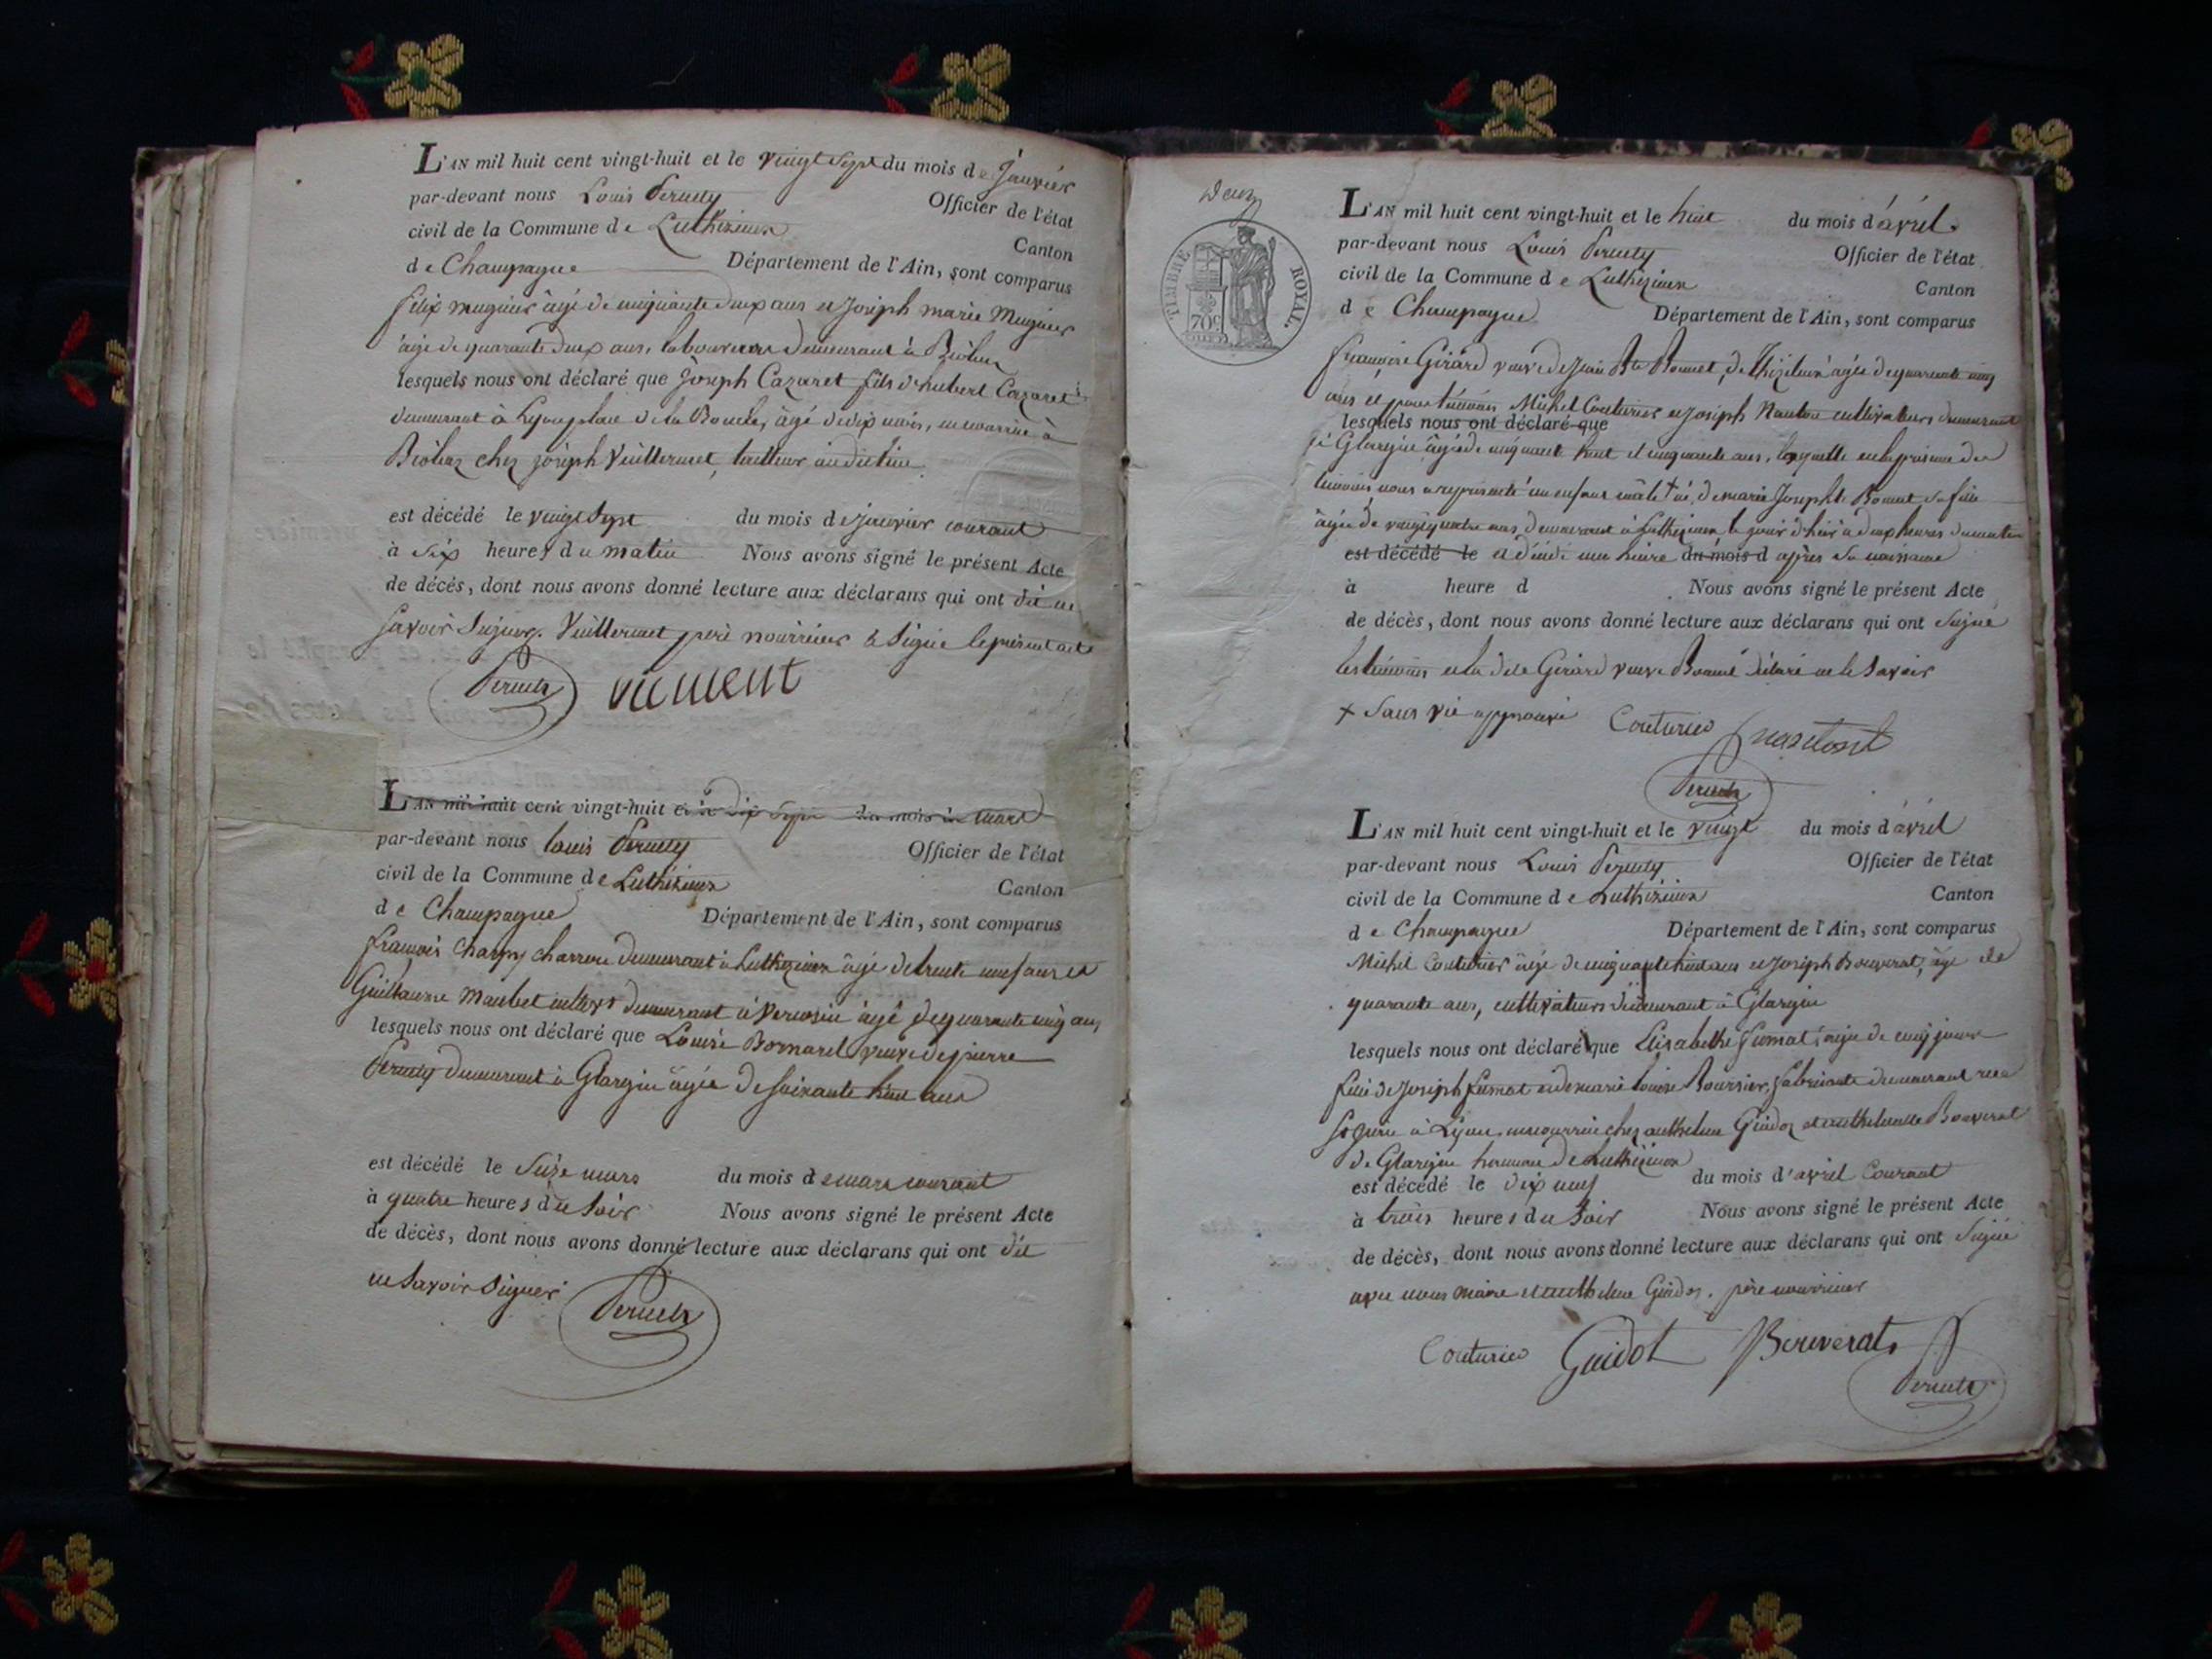 L'AN mil huit cent vingt-huit et le vingt sept du mois de Janvier
par-devant nous Louis Peruely Officier de l'état
civil de la Commune de Luthezieux Canton
de Champagne Département de l'Ain, sont comparus
félix mugnier âgé de cinquante deux ans et Joseph marie Mugnier
âgé de quarante deux ans, laboureurs demeurant à Biolaz
lesquels nous ont déclaré que Joseph Cazaret fils d'hubert Cazaret
demeurant à Lyon place de la Boucle, âgé de dix mois, en nourrice à
Biolaz chez joseph Vuillermet, tailleur audit lieu
est décédé le vingt sept du mois de janvier courant
à six heures du matin Nous avons signé le présent Acte
de décès, dont nous avons donné lecture aux déclarans qui ont dit ne
savoir signer. Vuillermet père nourricier a signé le présent acte
L'AN mil huit cent vingt-huit et le dix sept du mois de mars
par-devant nous louis Peruely Officier de l'état
civil de la Commune de Luthezieux Canton
de Champagne Département de l'Ain, sont comparus
françois Charpy charron demeurant à Luthezieux âgé de trente neuf ans et
Guillaume Maubet demeurant à Vercosin âgé de quarante cinq ans
lesquels nous ont déclaré que Louise Bornarel veuve de pierre
Peruely demeurant à Glargin âgée de soixante huit ans
est décédé le seize mars du mois de mars courant
à quatre heures du soir Nous avons signé le présent Acte
de décès, dont nous avons donné lecture aux déclarans qui ont dit
ne savoir signer
Deux
TIMBRE ROYAL.
70c
L'AN mil huit cent vingt-huit et le huit du mois d'avril.
par-devant nous Louis Peruely Officier de l'état
civil de la Commune de Luthezieux Canton
de Champagne Département de l'Ain, sont comparus
françoise Girard veuve de Jean Bte Bonnet, âgée de quarante cinq
ans et pour témoins Michel Couturier et Joseph Nanton cultivateurs demeurant
lesquels nous ont déclaré que
à Glargin âgés de cinquante huit et cinquante ans, laquelle en la présence des
témoins nous a représenté un enfant mâle + né, de marie Josephte Bonnet sa fille
âgée de vingt quatre ans, demeurant à Luthezieux le jour d'hier à deux heures du matin
est décédé le une heure du mois d après sa naissance
à heure d Nous avons signé le présent Acte
de décès, dont nous avons donné lecture aux déclarans qui ont signé
les témoins et la dite Girard veuve Bonnet déclaré ne le savoir
+ sans vie approuvé Couturier
L'AN mil huit cent vingt-huit et le vingt du mois d'avril
par-devant nous Louis Peruely Officier de l'état
civil de la Commune de Luthezieux Canton
de Champagne Département de l'Ain, sont comparus
Michel Couturier âgé de cinquante huit ans et Joseph Bouverat, âgé de
quarante ans, cultivateurs demeurant à Glargin
lesquels nous ont déclaré que Elisabeth fumat, âgée de cinq jours
fille de Joseph fumat et de marie louise Boursier, fabricants demeurant rue
à Lyon, en nourrice chez anthelme Guidoz et Bouverat
de Glargin de Luthezieux
est décédé le dix neuf du mois d'avril Courant
à trois heures du soir Nous avons signé le présent Acte
de décès, dont nous avons donné lecture aux déclarans qui ont signé
avec nous maire et anthelme Guidoz. père nourricier
Couturier Guidot Bouverat